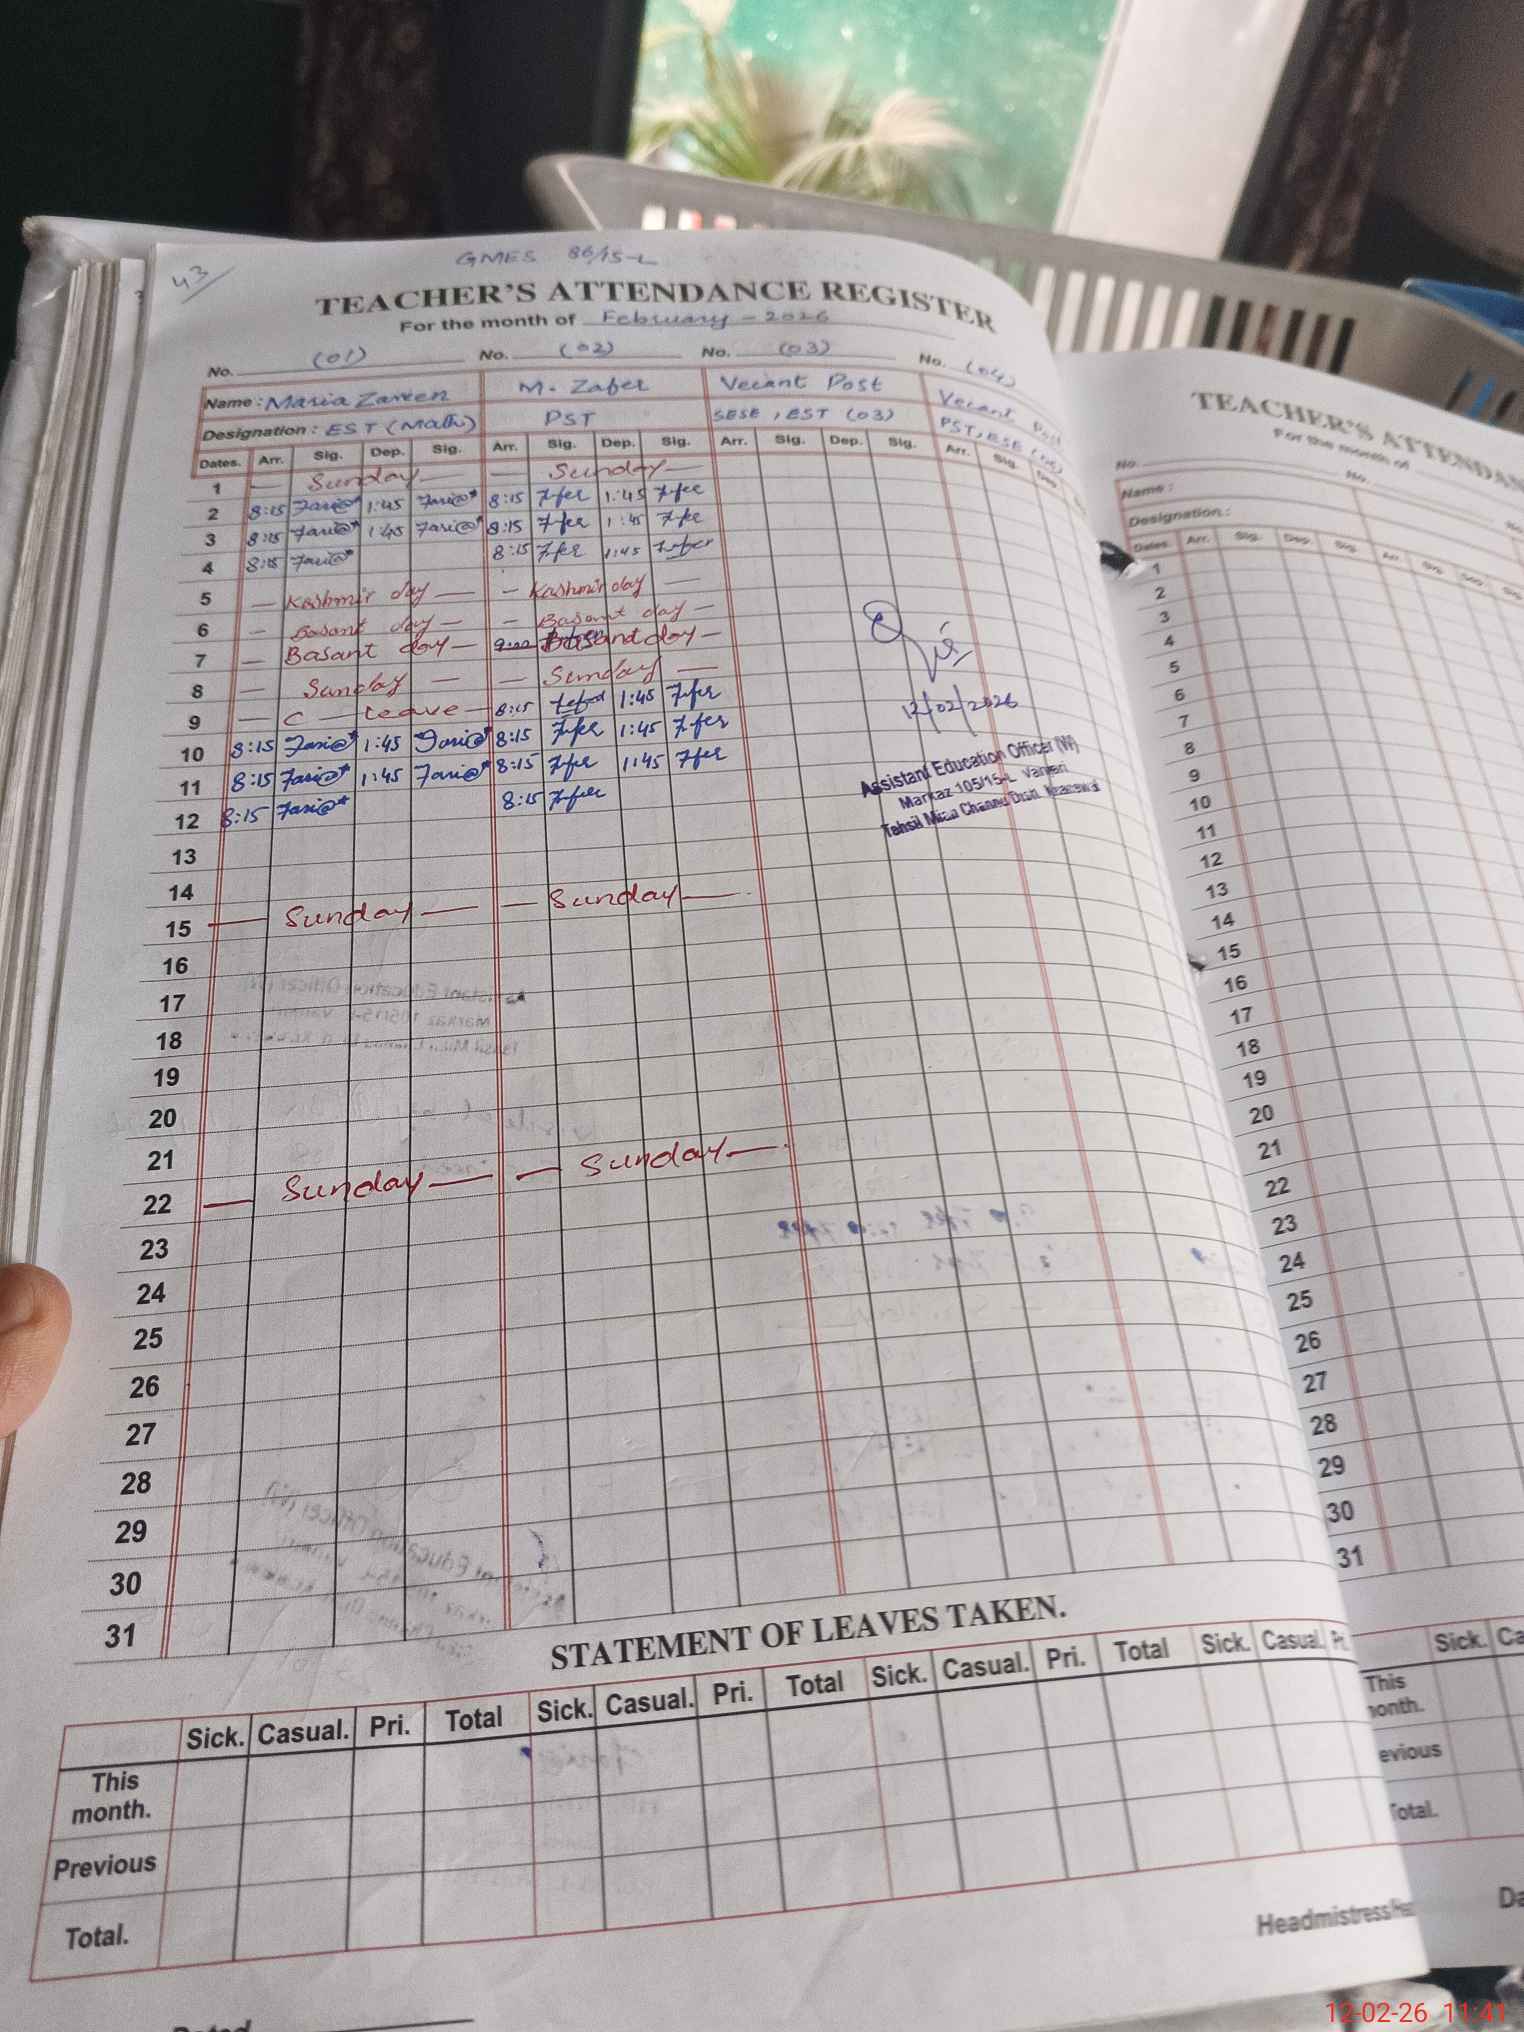 43
GMES 86/15-L
TEACHER'S ATTENDANCE REGISTER
For the month of February - 2026
No. (01) No. (02) No. (03) No. (04)
Name : Maria Zareen M. Zafer Vecant Post Vecant Post
Designation : EST (Math) PST SESE, EST (03) PST, ESE
Dates. Arr. Sig. Dep. Sig. Arr. Sig. Dep. Sig. Arr. Sig. Dep. Sig. Arr. Sig.
1 — Sunday — — Sunday —
2 8:15 1:45 8:15 1:45
3 8:15 1:45 8:15 1:45
4 8:15 8:15 1:45
5 — Kashmir day — — Kashmir day —
6 — Basant day — — Basant day —
7 — Basant day — 9:00 Basand day —
8 — Sunday — — Sunday —
9 — C — Leave — 8:15 1:45
10 8:15 1:45 8:15 1:45
11 8:15 1:45 8:15 1:45
12 8:15 8:15
13
14
15 — Sunday — — Sunday —
16
17
18
19
20
21
22 — Sunday — — Sunday —
23
24
25
26
27
28
29
30
31
12/02/2026
Assistant Education Officer (W)
Markaz 105/15-L
Tehsil Mian Channu
STATEMENT OF LEAVES TAKEN.
Sick. Casual. Pri. Total Sick. Casual. Pri. Total Sick. Casual. Pri. Total Sick. Casual.
This month.
Previous
Total.
Headmistress
Dated
TEACHER'S ATTENDAN
For the month of
No. No.
Name :
Designation :
Dates. Arr. Sig. Dep. Sig. Arr.
1
2
3
4
5
6
7
8
9
10
11
12
13
14
15
16
17
18
19
20
21
22
23
24
25
26
27
28
29
30
31
Sick. Ca
This
onth.
evious
Total.
Da
12-02-26 11:41